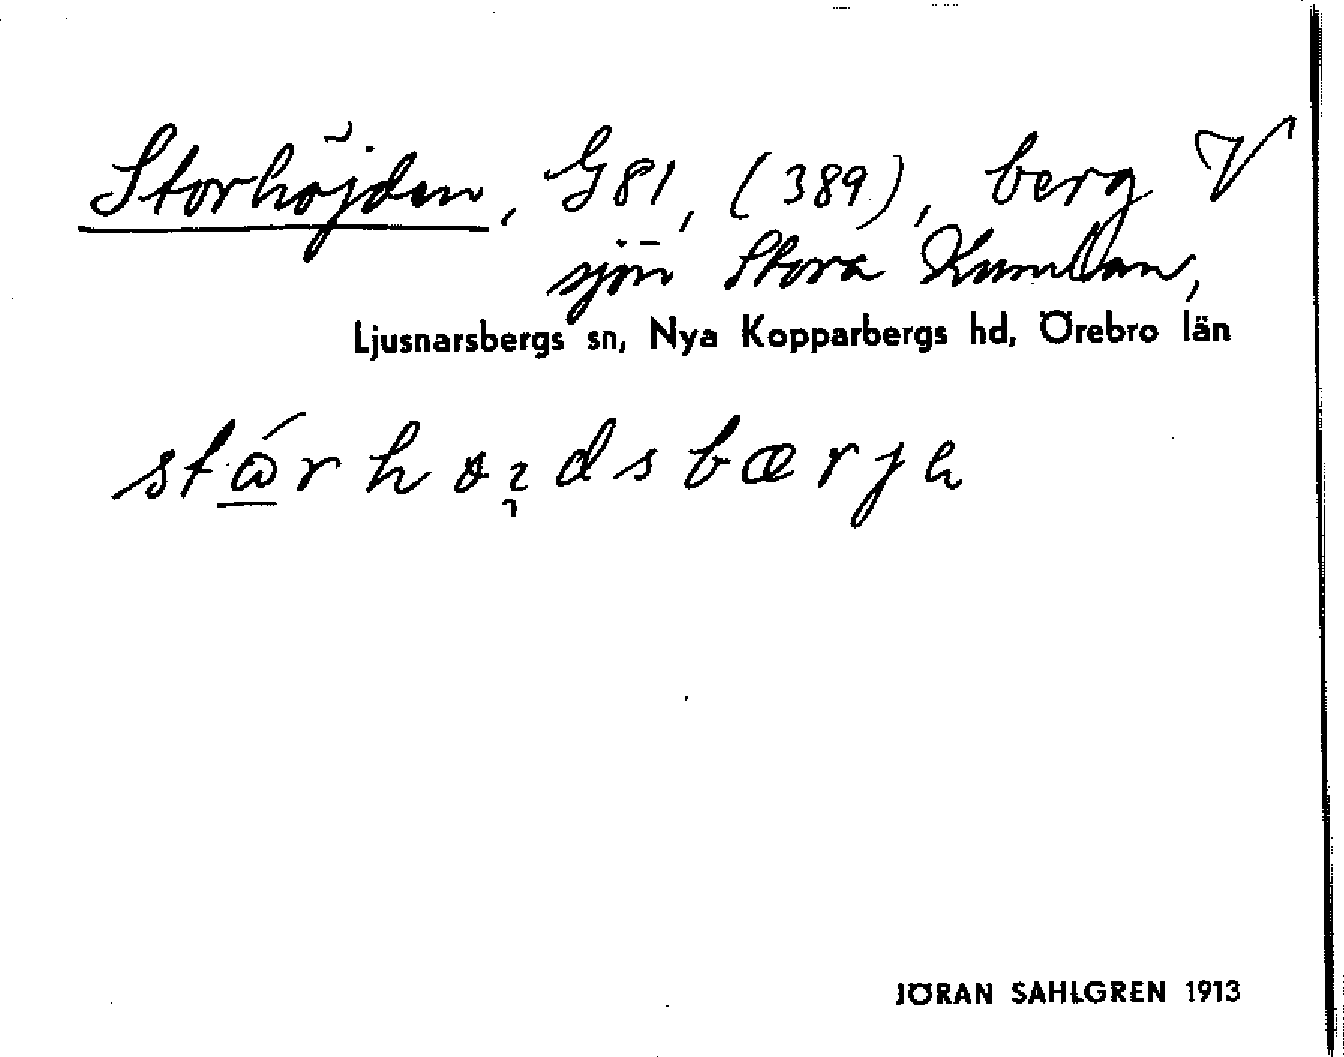 Storhöjden, G81, (389), berg V
sjön Stora Kumlan,
Ljusnarsbergs sn, Nya Kopparbergs hd, Örebro län
JÖRAN SAHLGREN 1913